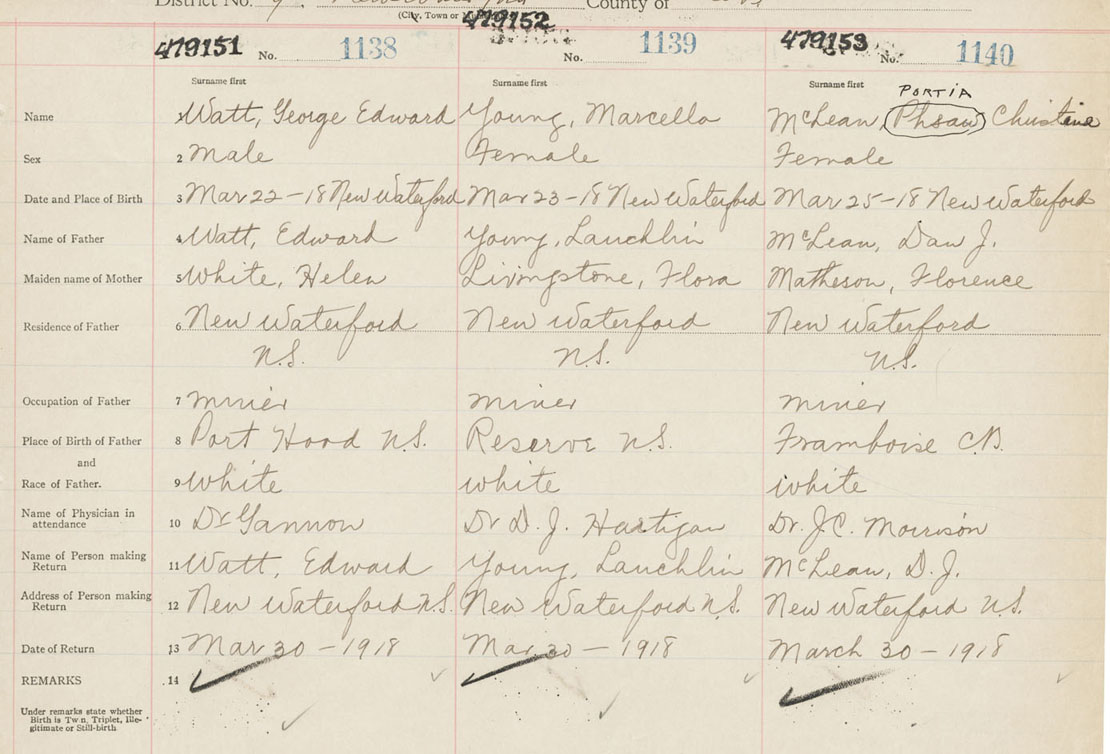 District No. 9. New Waterford County of
(City, Town or
479151 No. 1138 479152 No. 1139 479153 No. 1140
Surname first Surname first Surname first PORTIA
Name 1 Watt, George Edward Young, Marcella McLean, Phsaw Christine
Sex 2 Male Female Female
Date and Place of Birth 3 Mar 22-18 New Waterford Mar 23-18 New Waterford Mar 25-18 New Waterford
Name of Father 4 Watt, Edward Young, Lauchlin McLean, Dan J.
Maiden name of Mother 5 White, Helen Livingstone, Flora Matheson, Florence
Residence of Father 6 New Waterford New Waterford New Waterford
N.S. N.S. N.S.
Occupation of Father 7 miner miner miner
Place of Birth of Father 8 Port Hood N.S. Reserve N.S. Framboise C.B.
and
Race of Father. 9 white white white
Name of Physician in
attendance 10 Dr Gannon Dr D. J. Hartigan Dr. J.C. Morrison
Name of Person making
Return 11 Watt, Edward Young, Lauchlin McLean, D. J.
Address of Person making
Return 12 New Waterford N.S. New Waterford N.S. New Waterford N.S.
Date of Return 13 Mar 30 - 1918 Mar 30 - 1918 March 30 - 1918
REMARKS 14
Under remarks state whether
Birth is Twin, Triplet, Ille-
gitimate or Still-birth